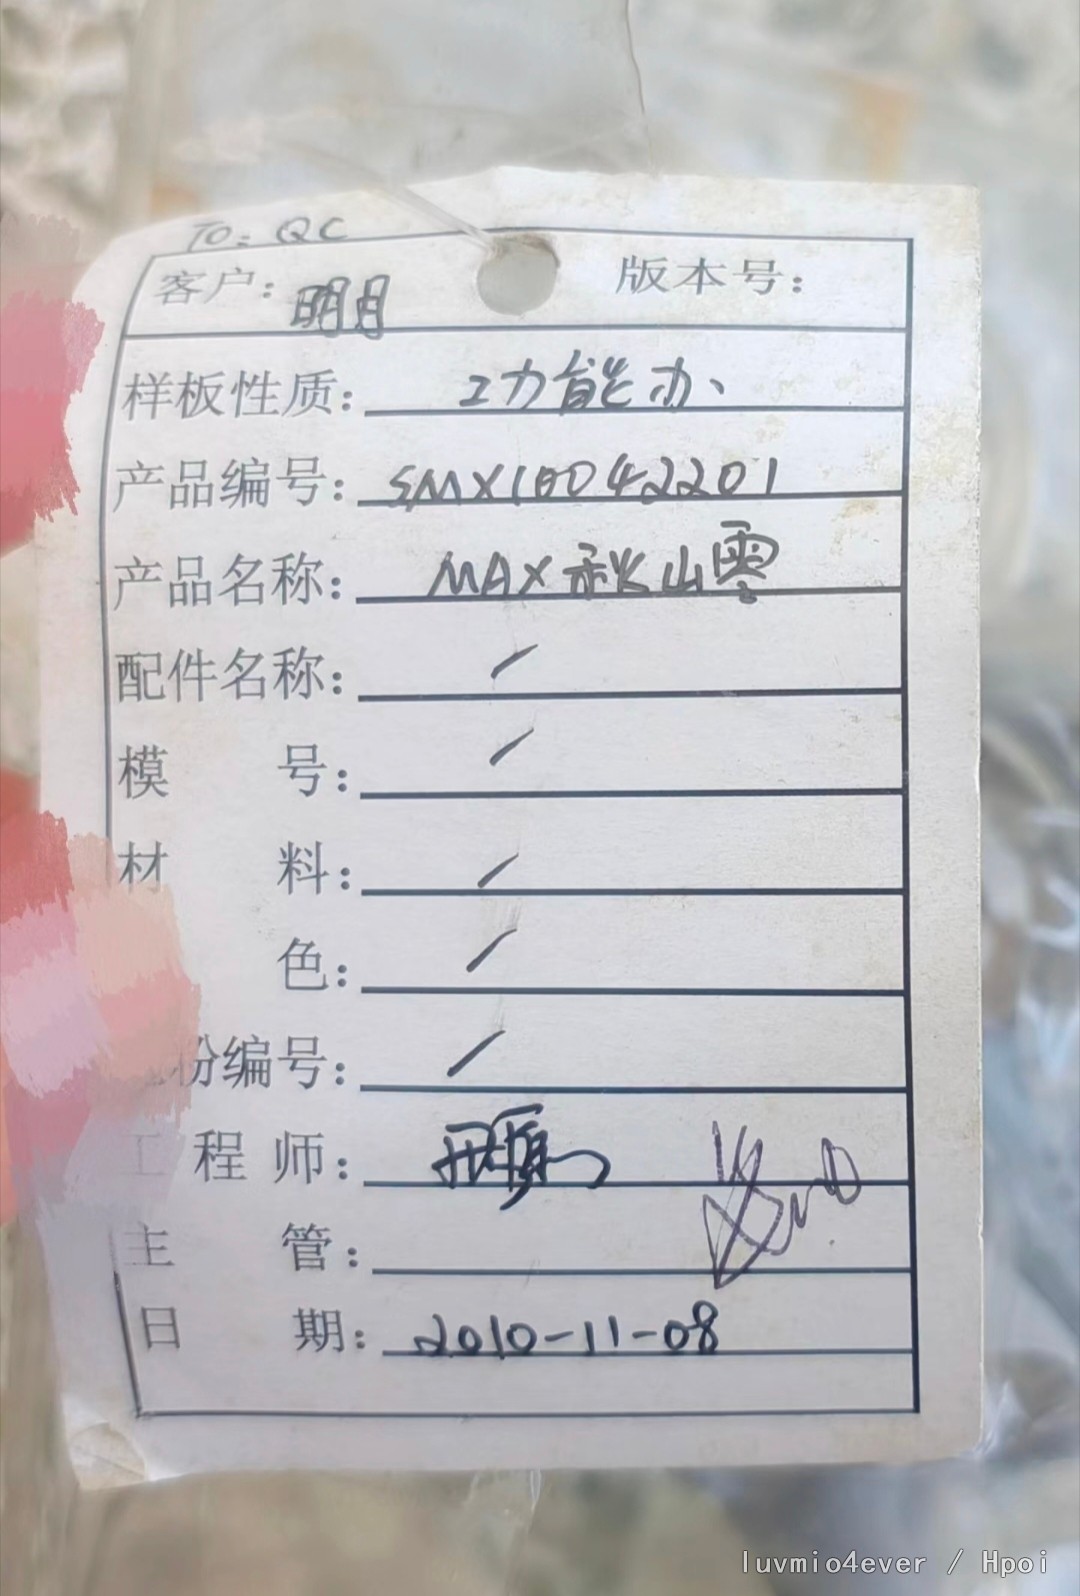 TO: QC
客户：明月 版本号：
样板性质：功能办、
产品编号：SMX10042201
产品名称：MAX 秋山雫
配件名称：/
模 号：/
材 料：/
色：/
份编号：/
工程师：
主 管：
日 期：2010-11-08
luvmio4ever / Hpoi